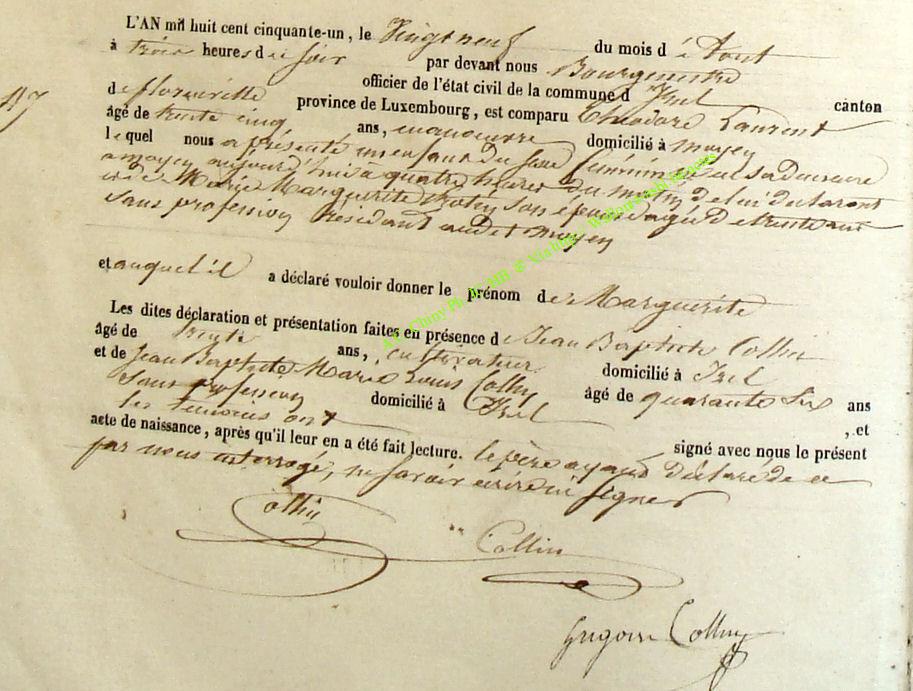 L'AN mil huit cent cinquante-un, le Vingt neuf du mois d'Aout
à trois heures du soir par devant nous Bourgmestre
officier de l'état civil de la commune d'Izel canton
de florenville province de Luxembourg, est comparu Théodore Laurent
âgé de trente cinq ans, manoeuvre domicilié à moyen
lequel nous a présenté un enfant du sexe féminin né en sa demeure
a moyen aujourd'hui a quatre heures du matin de lui déclarant
et de Marie Marguerite son épouse agée de trente ans
sans profession résidant audit moyen
et auquel il a déclaré vouloir donner le prénom de Marguerite
Les dites déclaration et présentation faites en présence de Jean Baptiste Collin
âgé de trente ans, cultivateur domicilié à Izel
et de Jean Baptiste Marie Louis Collin âgé de quarante six ans
sans profession domicilié à Izel , et
les temoins ont signé avec nous le présent
acte de naissance, après qu'il leur en a été fait lecture. le père ayant déclaré de ce
par nous interrogé, ne savoir écrire ni signer
Collin
Collin
Grégoire Collin